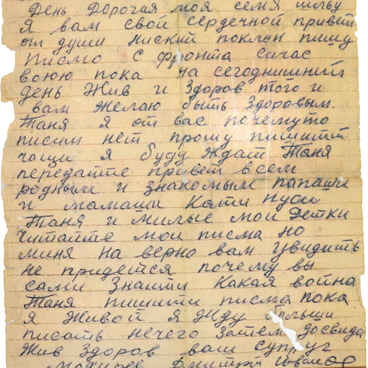 День Дорогая моя семя шлю
Я вам свой сердечной привет
от души ниский поклон пишу
письмо с фронта сичас
воюю пока на сегоднишний
день Жив и Здоров того и
вам желаю быть здоровым.
Таня я от вас почемуто
писим нет прошу пишити
чащи я буду ждат Таня
передайте привет всем
родным и знакомым папаши
и мамаши Кати Нуси
Таня и милые мои детки
читайте мои писма но
миня на верно вам увидить
не придется почему вы
сами знаити какая война
Таня пишити писма пока
я живой я жду больши
писать нечего затем досвида
жив здоров ваш супруг
Дмитрий